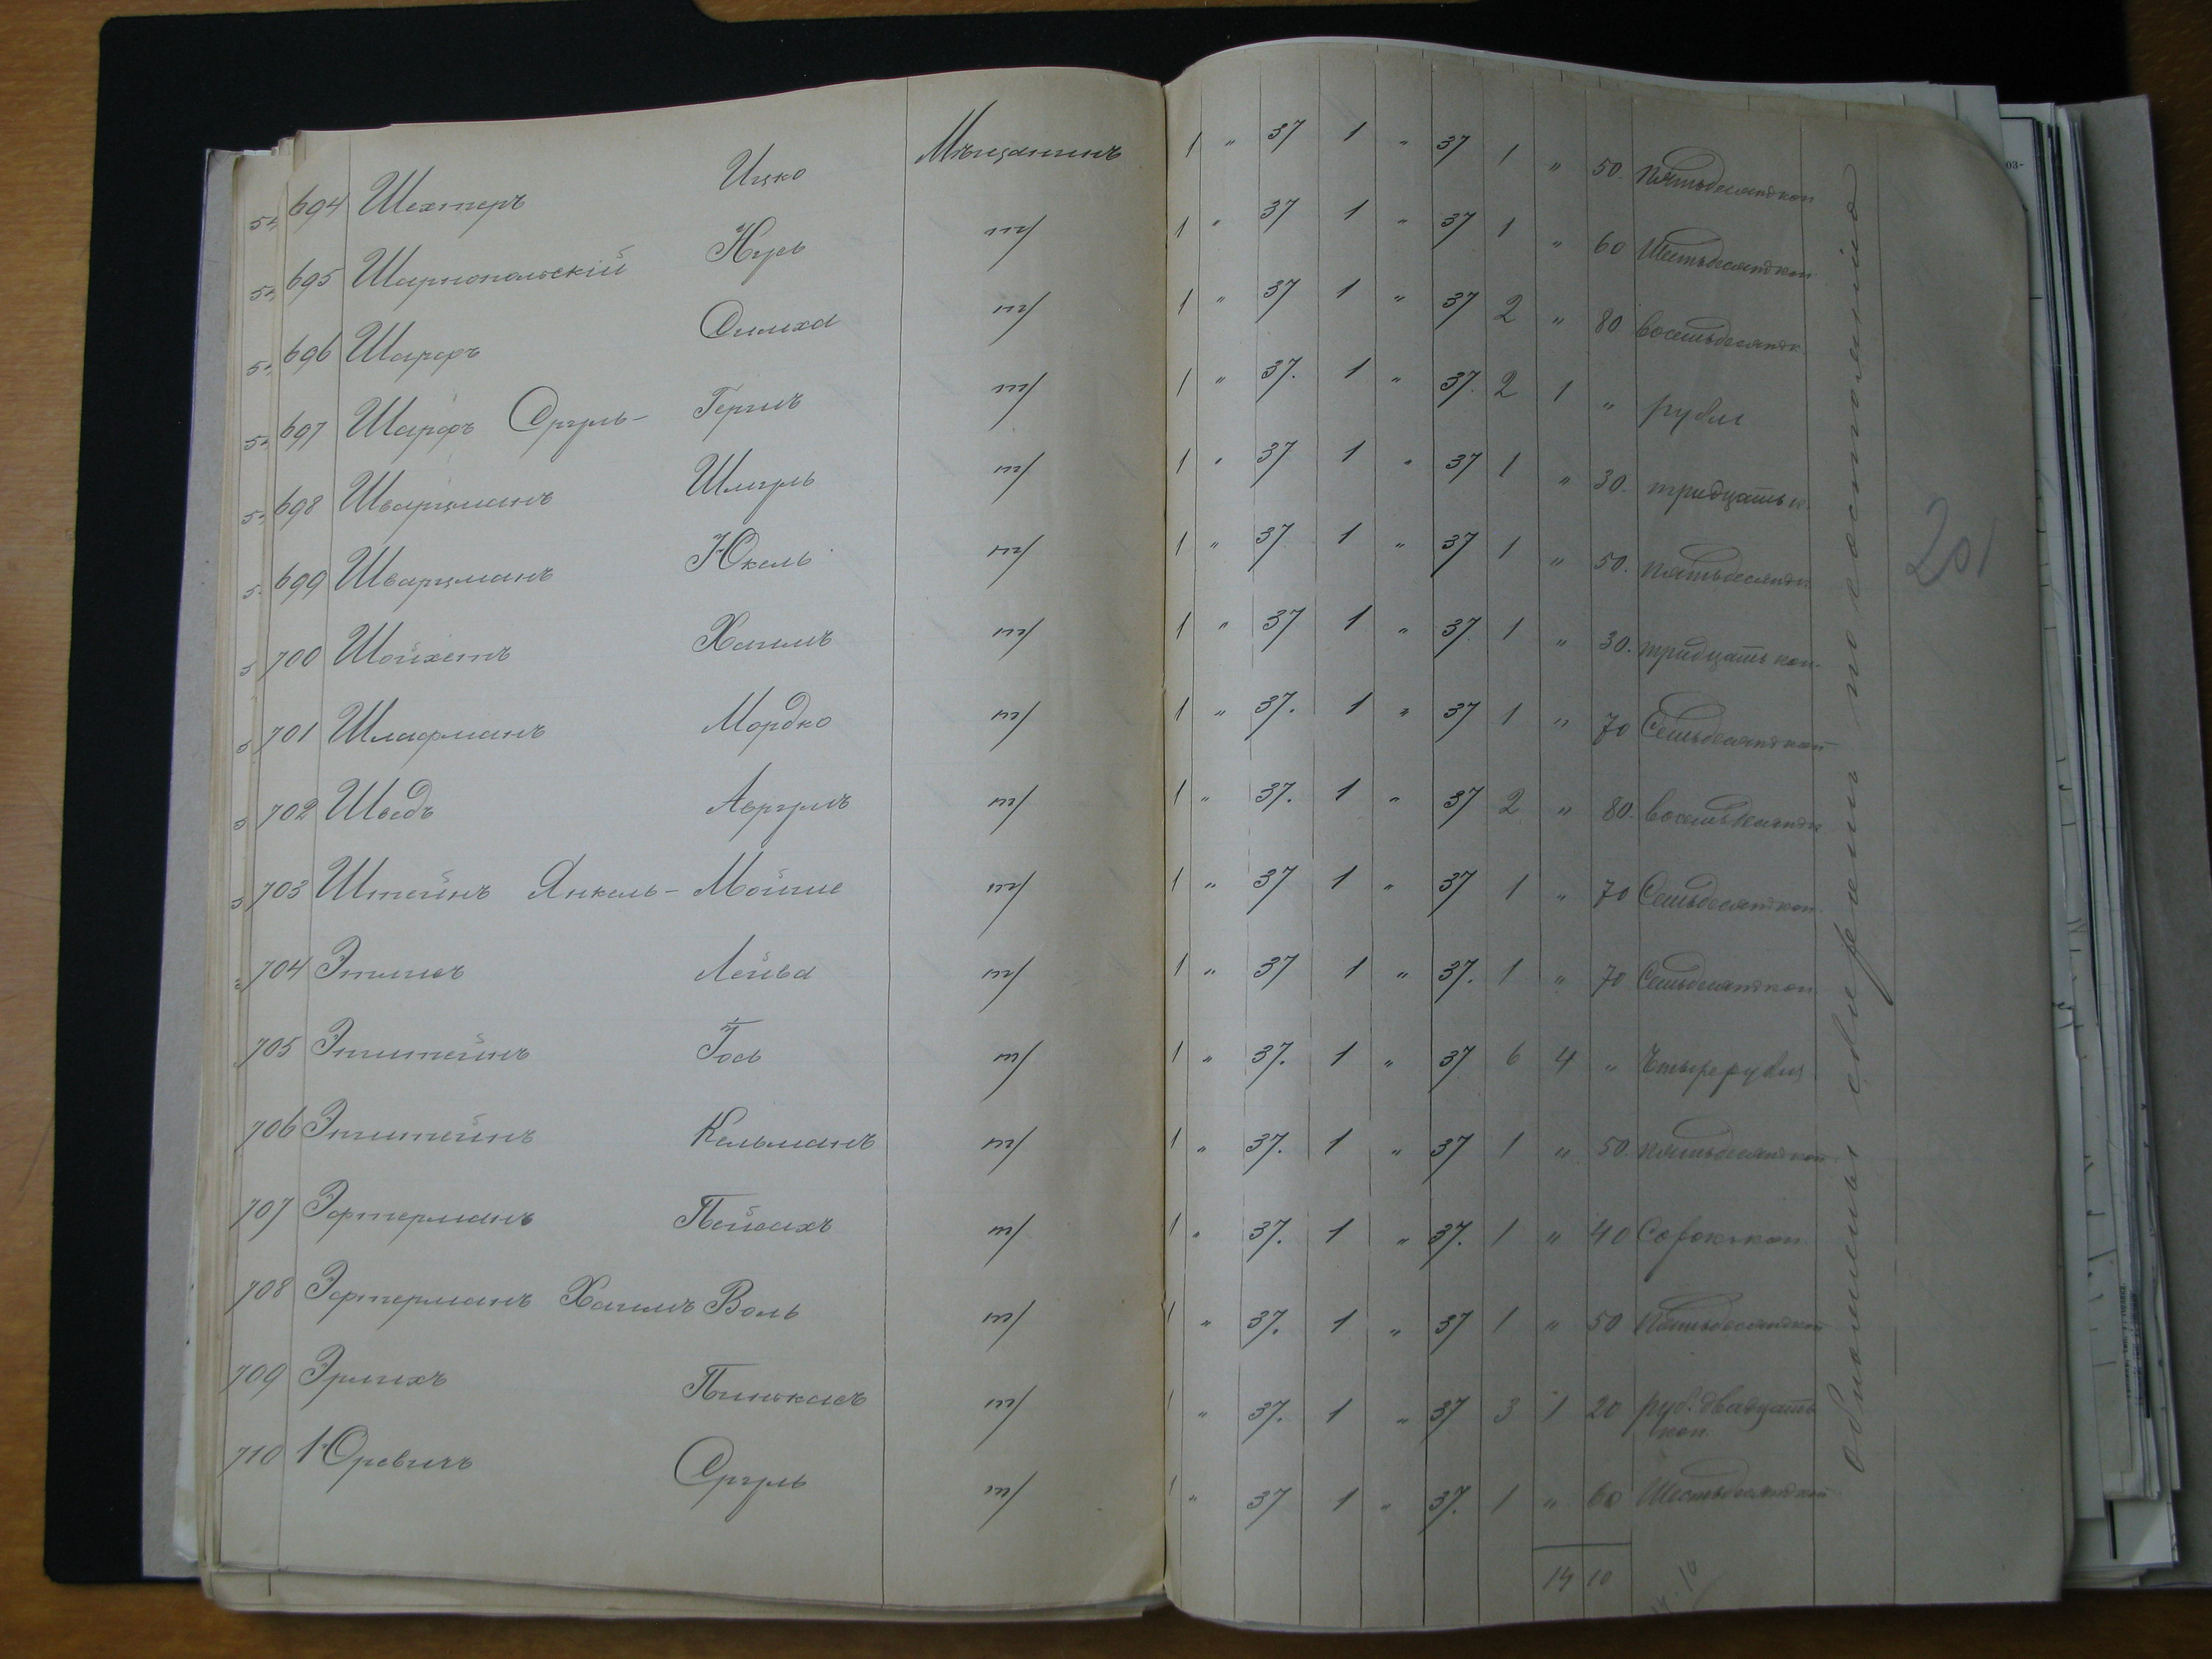 694 Шехтеръ Ицко Мѣщанинъ 1 " 37 1 " 37 1 " 50. Пятьдесятъ коп
695 Шарнопольскій Нусь т/ 1 " 37 1 " 37 1 " 60 Шестьдесятъ коп
696 Шарфъ Симха т/ 1 " 37 1 " 37 2 " 80 восемьдесятъ к.
697 Шарфъ Сруль- Гершъ т/ 1 " 37. 1 " 37. 2 1 " рубль
698 Шварцманъ Шмуль т/ 1 " 37 1 " 37 1 " 30. тридцать к.
699 Шварцманъ Юкель т/ 1 " 37 1 " 37 1 " 50. пятьдесятъ к.
700 Шойхетъ Хаимъ т/ 1 " 37 1 " 37 1 " 30. тридцать коп.
701 Шлафманъ Мордко т/ 1 " 37. 1 " 37 1 " 70 Семьдесятъ коп
702 Шведъ Аврумъ т/ 1 " 37. 1 " 37 2 " 80. восемьдесятъ к
703 Штейнъ Янкель- Мойше т/ 1 " 37 1 " 37 1 " 70 Семьдесятъ коп.
704 Этлисъ Лейва т/ 1 " 37 1 " 37. 1 " 70 Семьдесятъ коп.
705 Эпштейнъ Іось т/ 1 " 37. 1 " 37 6 4 " Четыре рубля
706 Эпштейнъ Кельманъ т/ 1 " 37. 1 " 37 1 " 50. пятьдесятъ коп
707 Эфтерманъ Пейсахъ т/ 1 " 37. 1 " 37. 1 " 40 Сорокъ коп
708 Эфтерманъ Хаимъ Воль т/ 1 " 37. 1 " 37 1 " 50 Пятьдесятъ коп
709 Эрлихъ Пинькасъ т/ " 37. 1 " 37 3 1 20 руб. двадцать
коп.
710 Юревичъ Сруль т/ 1 " 37 1 " 37. 1 " 60 Шестьдесятъ коп
14 10
14.10
Обложены сборомъ по состоянію
201